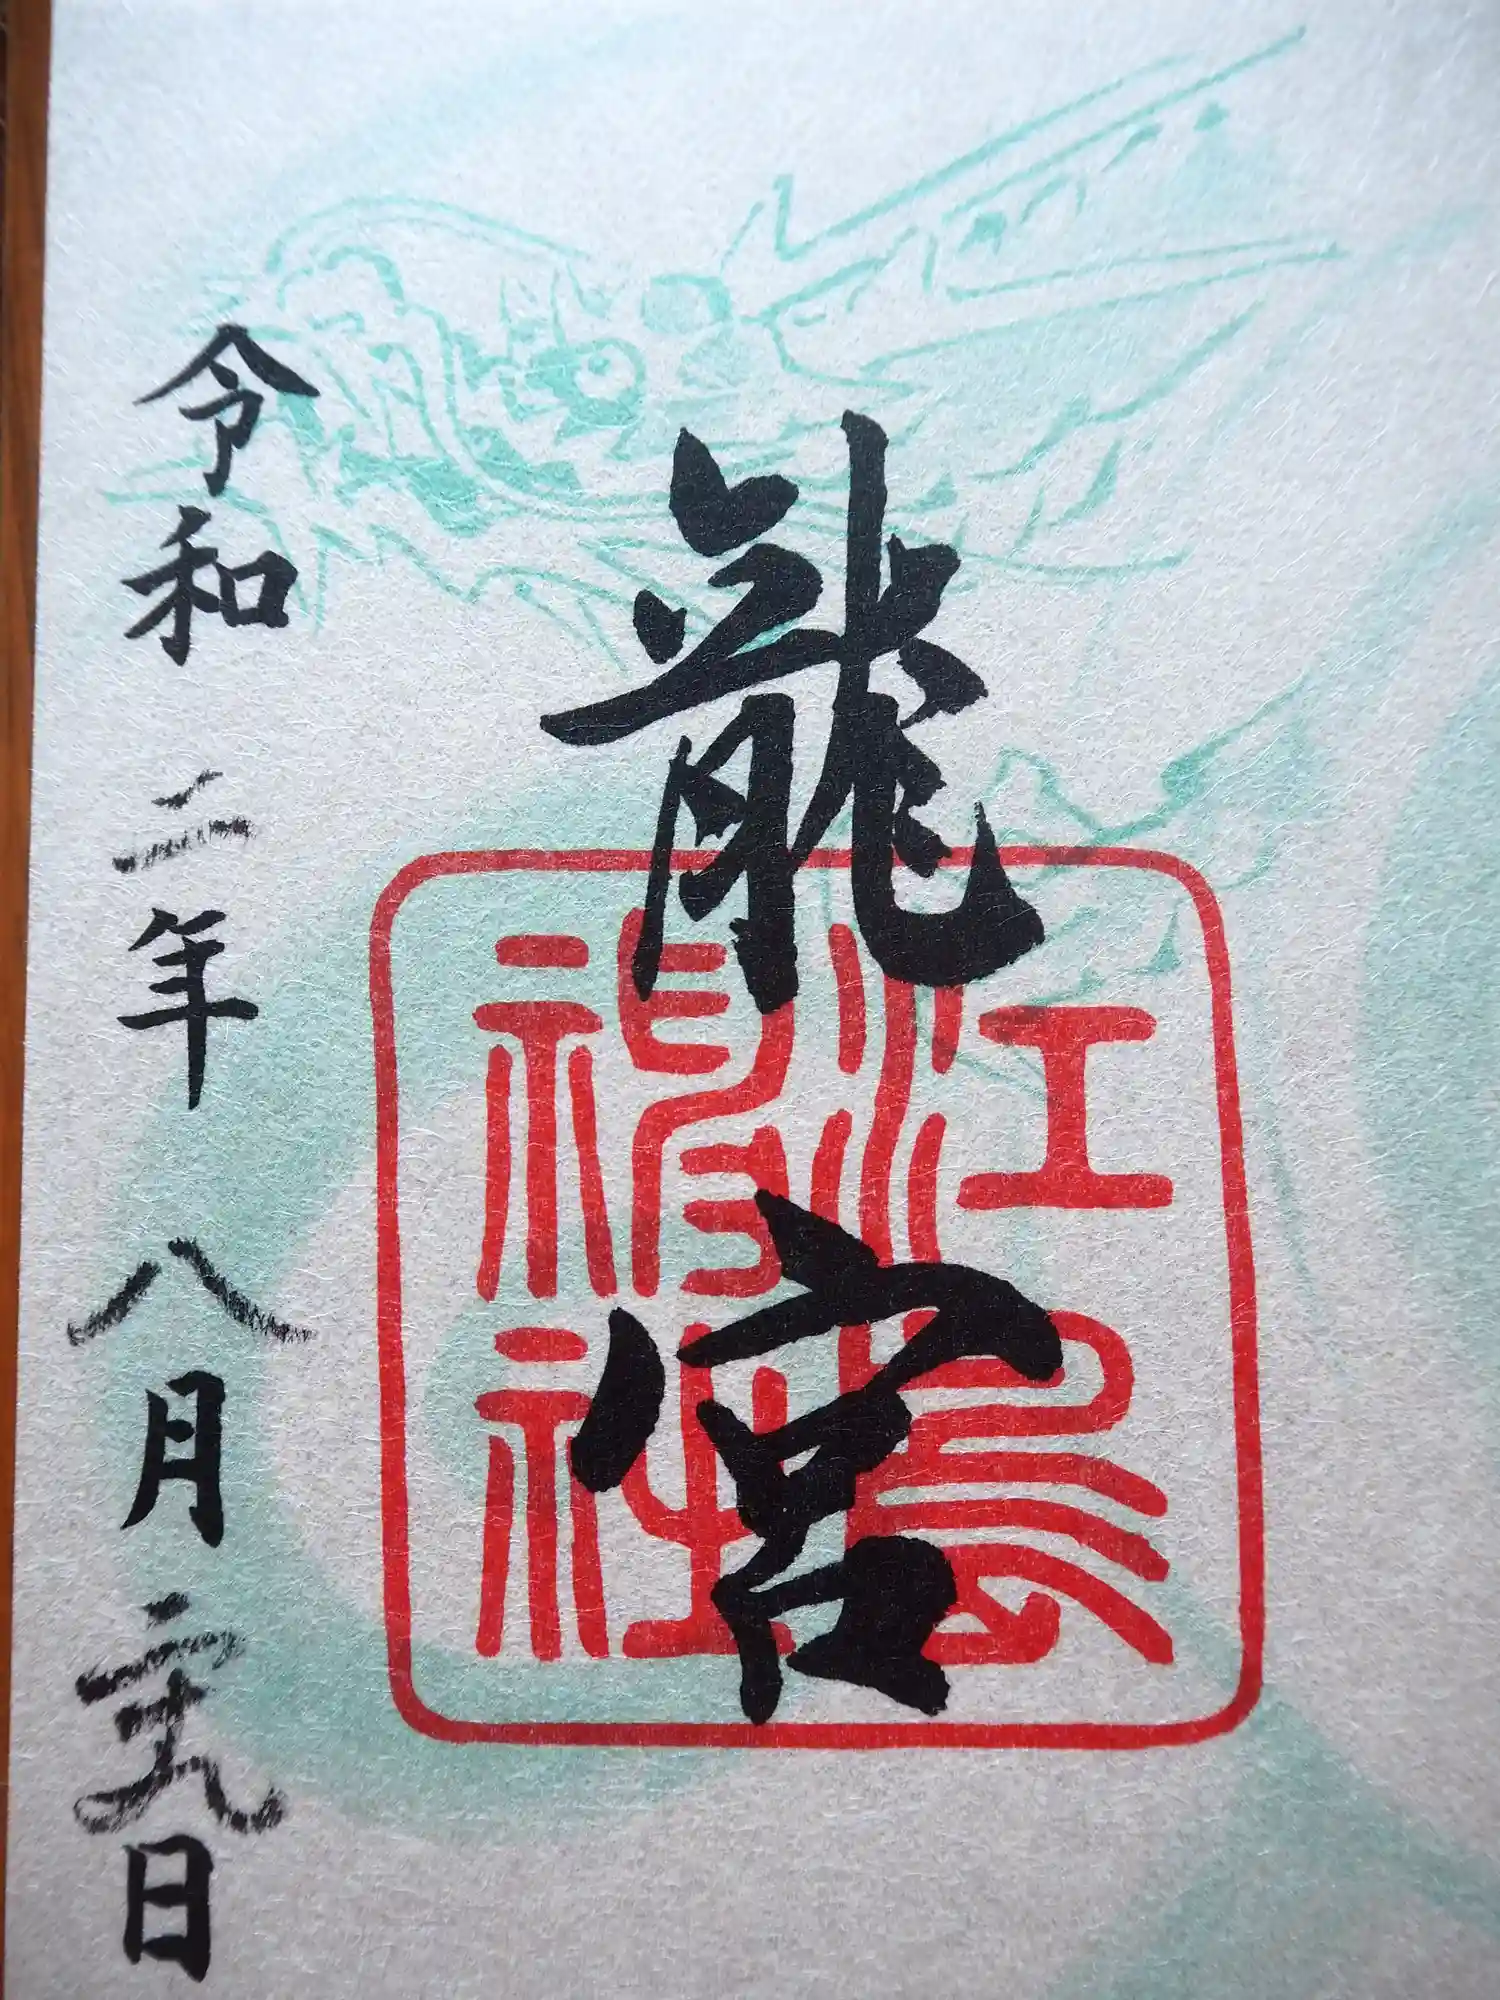 龍宮
江島
神社
令和二年八月二十九日